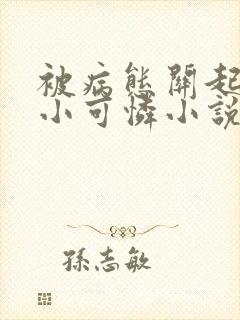 被病態關起
小可憐小說
孫志敏